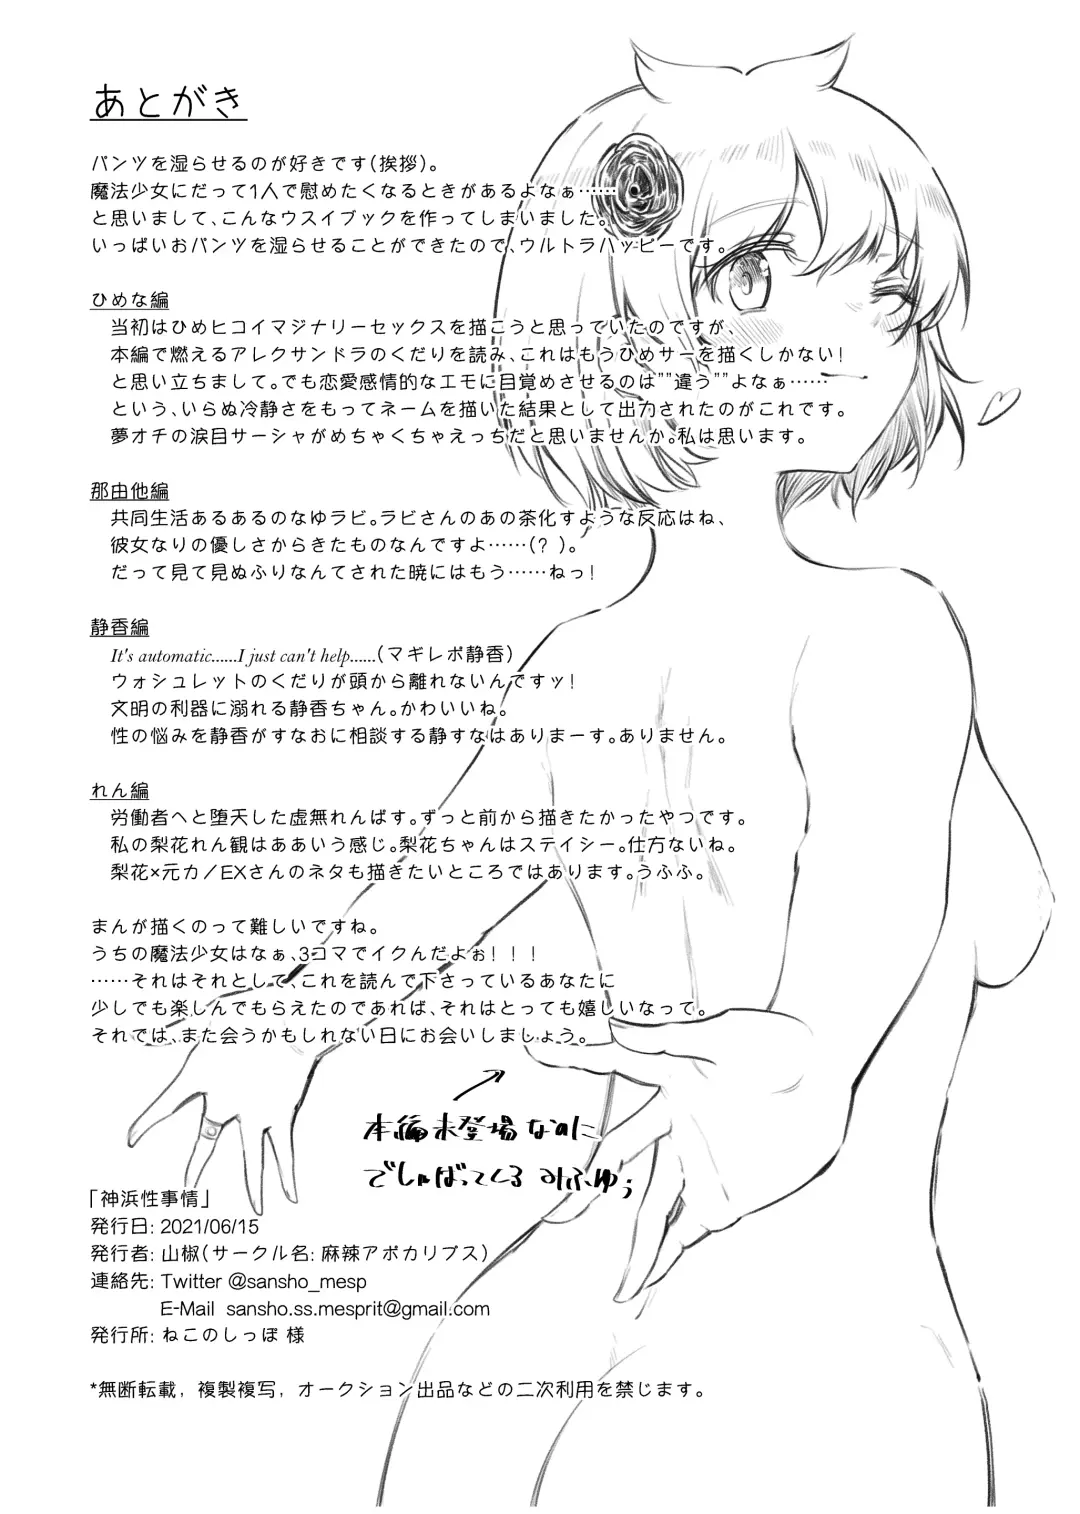 あとがき
パンツを湿らせるのが好きです(挨拶)。
魔法少女にだって1人で慰めたくなるときがあるよなぁ……
と思いまして、こんなウスイブックを作ってしまいました。
いっぱいおパンツを湿らせることができたので、ウルトラハッピーです。
ひめな編
当初はひめヒコイマジナリーセックスを描こうと思っていたのですが、
本編で燃えるアレクサンドラのくだりを読み、これはもうひめサーを描くしかない！
と思い立ちまして。でも恋愛感情的なエモに目覚めさせるのは""違う""よなぁ……
という、いらぬ冷静さをもってネームを描いた結果として出力されたのがこれです。
夢オチの涙目サーシャがめちゃくちゃえっちだと思いませんか。私は思います。
那由他編
共同生活あるあるのなゆラビ。ラビさんのあの茶化すような反応はね、
彼女なりの優しさからきたものなんですよ……(？)。
だって見て見ぬふりなんてされた暁にはもう……ねっ！
静香編
It's automatic......I just can't help......(マギレポ静香)
ウォシュレットのくだりが頭から離れないんですッ！
文明の利器に溺れる静香ちゃん。かわいいね。
性の悩みを静香がすなおに相談する静すなはありまーす。ありません。
れん編
労働者へと堕天した虚無れんぱす。ずっと前から描きたかったやつです。
私の梨花れん観はああいう感じ。梨花ちゃんはステイシー。仕方ないね。
梨花×元カノEXさんのネタも描きたいところではあります。うふふ。
まんが描くのって難しいですね。
うちの魔法少女はなぁ、3コマでイクんだよぉ！！！
……それはそれとして、これを読んで下さっているあなたに
少しでも楽しんでもらえたのであれば、それはとっても嬉しいなって。
それでは、また会うかもしれない日にお会いしましょう。
本編未登場なのに
でしゃばってくるみふゆぅ
「神浜性事情」
発行日: 2021/06/15
発行者: 山椒(サークル名: 麻辣アポカリプス)
連絡先: Twitter @sansho_mesp
E-Mail sansho.ss.mesprit@gmail.com
発行所: ねこのしっぽ 様
*無断転載，複製複写，オークション出品などの二次利用を禁じます。